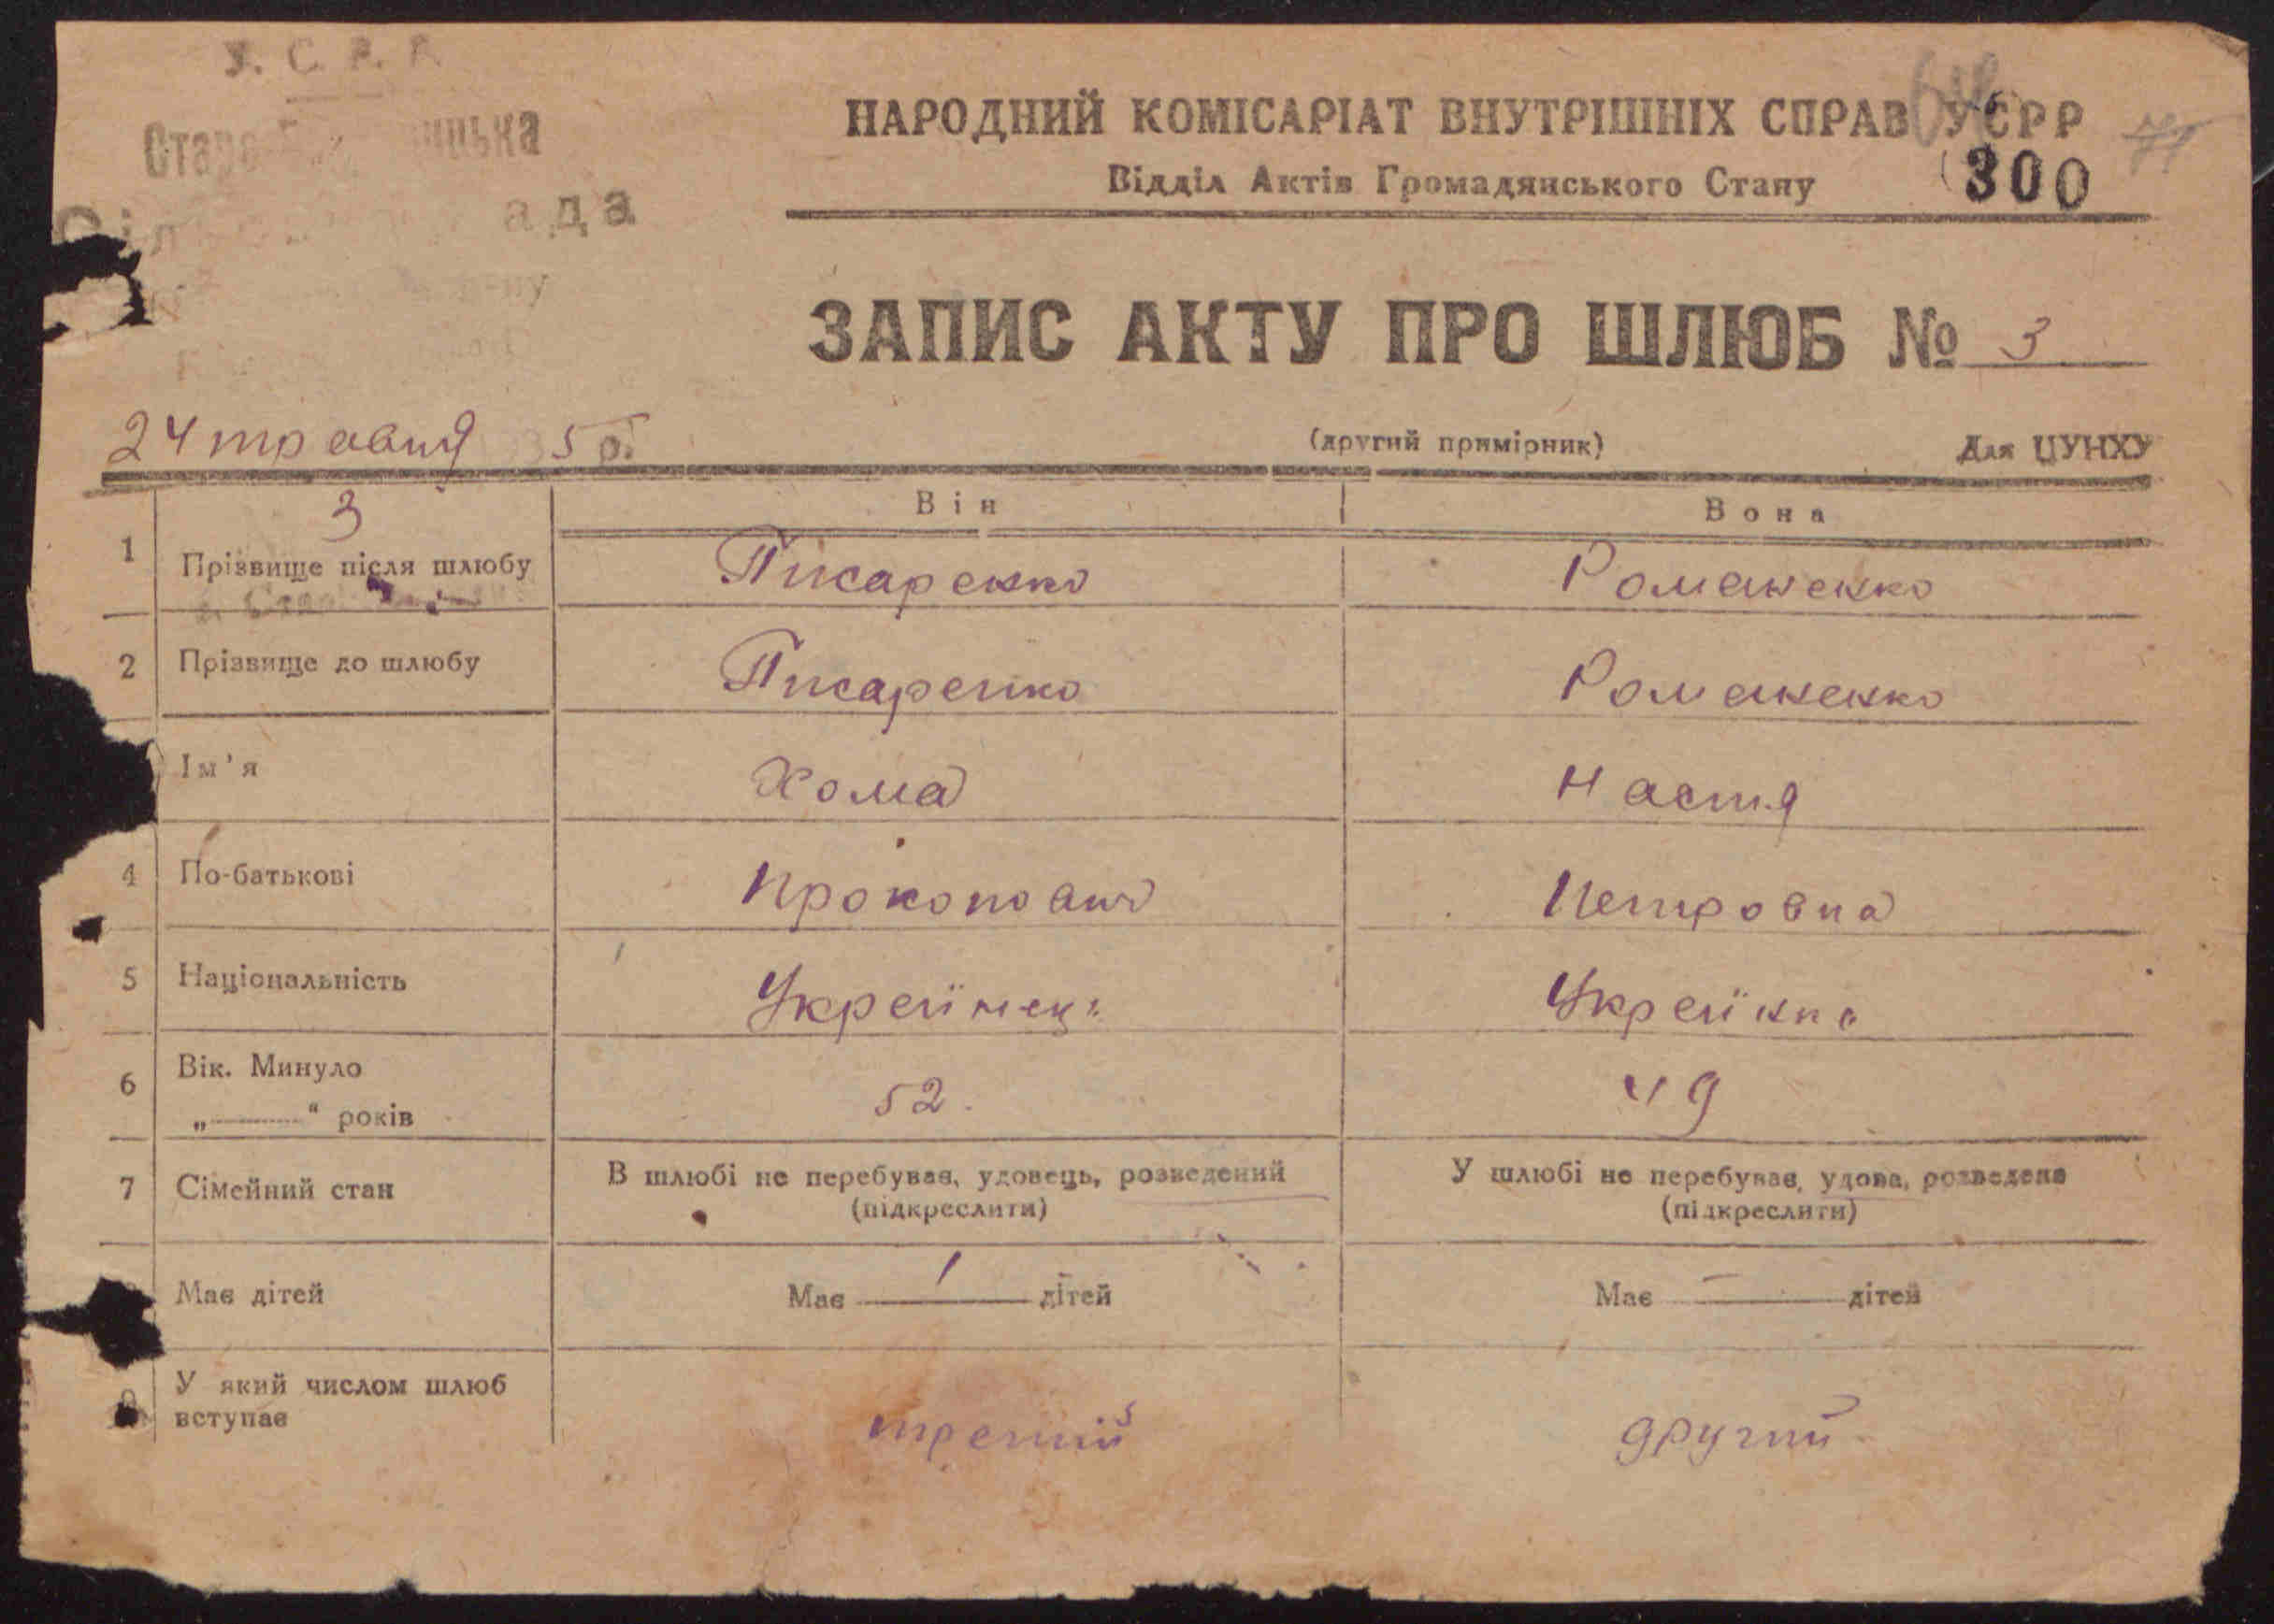 У. С. Р. Р.
НАРОДНИЙ КОМІСАРІАТ ВНУТРІШНІХ СПРАВ УСРР
Відділ Актів Громадянського Стану
300
ЗАПИС АКТУ ПРО ШЛЮБ № 3
24 травня 35 р.
(другий примірник) Для ЦУНХУ
Він Вона
3
1 Прізвище після шлюбу Писаренко Романенко
2 Прізвище до шлюбу Писаренко Романенко
Ім'я Хома Настя
4 По-батькові Прокопович Петровна
5 Національність Українець Українка
6 Вік. Минуло
„ “ років 52. 49
7 Сімейний стан В шлюбі не перебував, удовець, розведений У шлюбі не перебував, удова, розведена
(підкреслити) (підкреслити)
Має дітей Має 1 дітей Має — дітей
9 У який числом шлюб
вступає третій другий